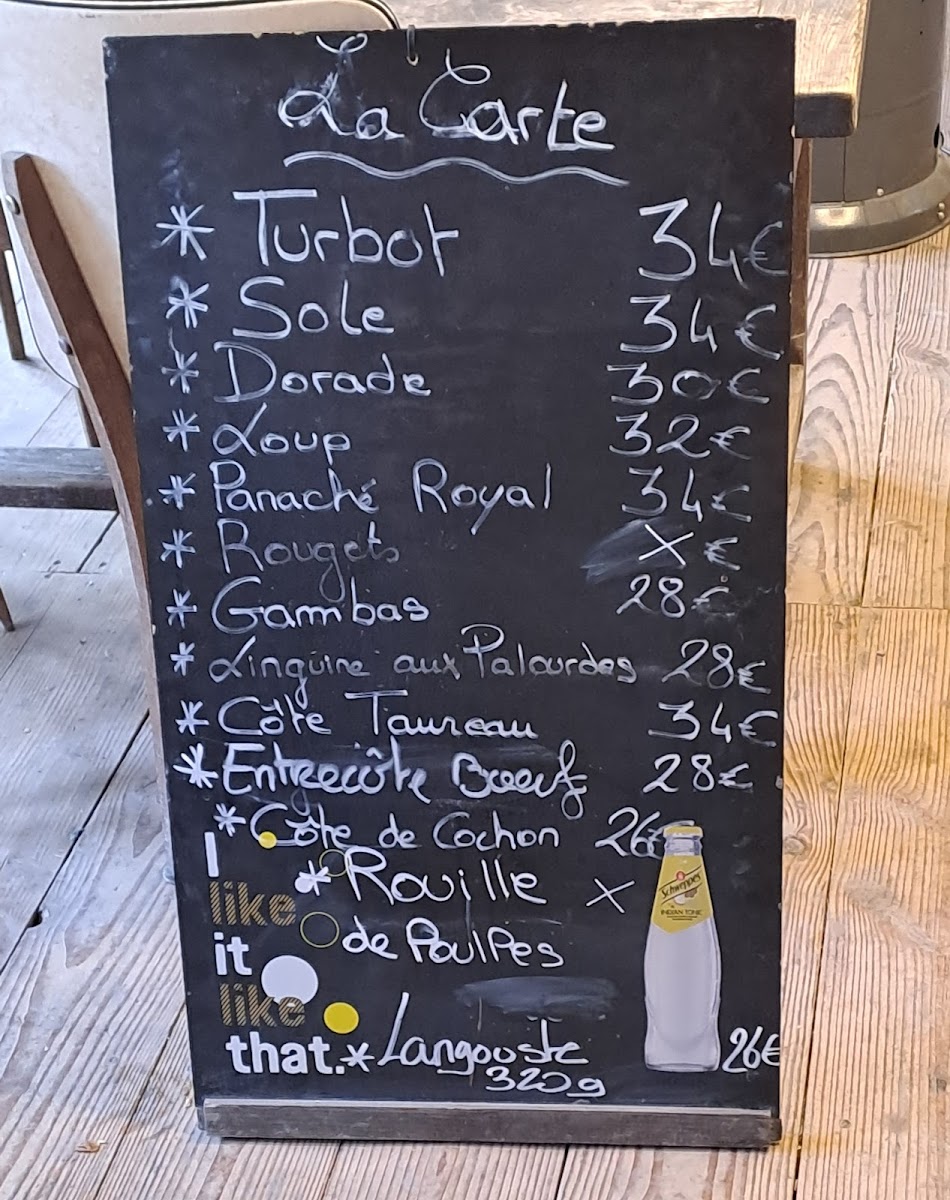 La Carte
* Turbot 34€
* Sole 34€
* Dorade 30€
* Loup 32€
* Panaché Royal 34€
* Rougets X €
* Gambas 28€
* Linguine aux Palourdes 28€
* Côte Taureau 34€
* Entrecôte Boeuf 28€
* Côte de Cochon 26€
* Rouille X
de Poulpes
* Langouste 26€
320g
I
like
it
like
that.
Schweppes
INDIAN TONIC